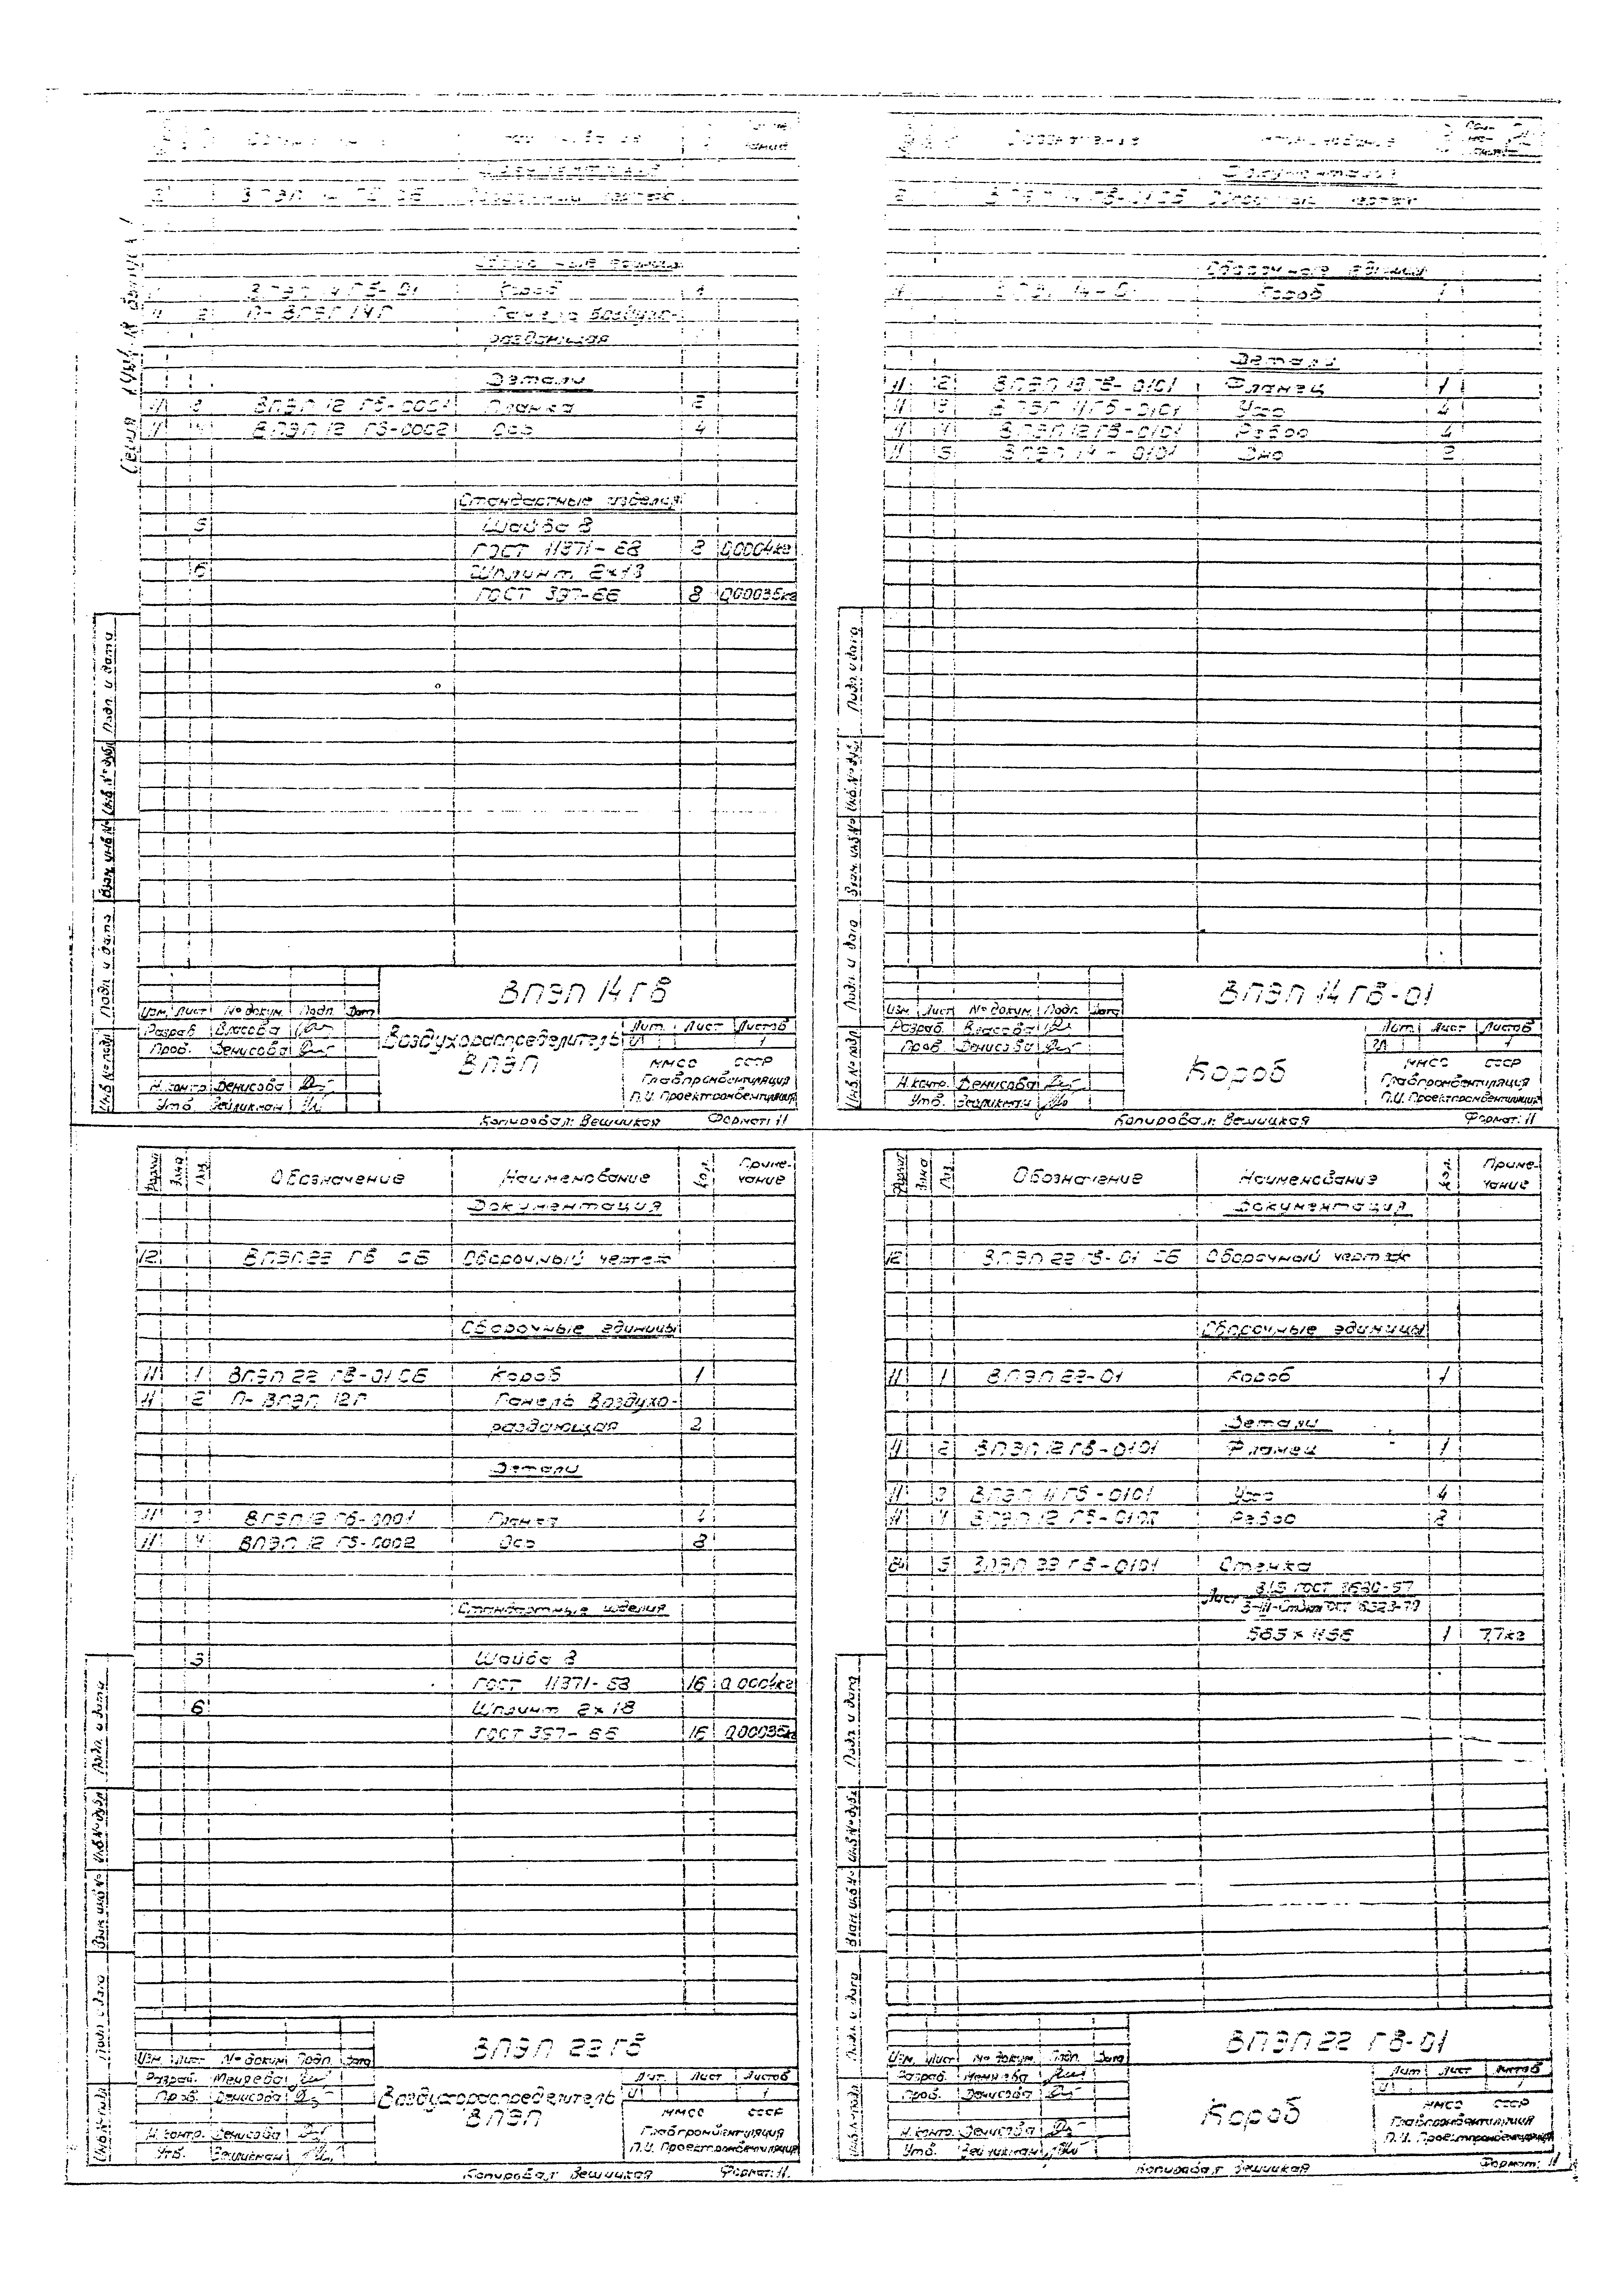 Сборочные единицы
ВПЭП 14 ГВ-01 Короб
П-ВПЭП 14 Г Панель воздухо-
раздающая
Детали
11 3 ВПЭП 12 ГВ-0001 Планка 2
11 4 ВПЭП 12 ГВ-0002 Ось 4
Стандартные изделия
5 Шайба 8
ГОСТ 11371-68 8 0,0004кг
6 Шплинт 2×18
ГОСТ 397-66 8 0,00035кг
ВПЭП 14 ГВ
Изм. Лист № докум. Подп. Дата
Разраб. Власова
Пров. Денисова
Н.контр. Денисова
Утв. Зейликман
Воздухораспределитель
ВПЭП
Лит. Лист Листов
1
ММСС СССР
Главпромвентиляция
П.И. Проектпромвентиляция
Копировал: Вешицкая Формат: 11
Подп. и дата
Инв. № дубл.
Взам. инв. №
Подп. и дата
Инв. № подл.
Обозначение Наименование
Документация
ВПЭП 14 ГВ-01 СБ Сборочный чертеж
Сборочные единицы
ВПЭП 14-01 Короб 1
Детали
11 2 ВПЭП 13 ГВ-0101 Фланец 1
11 3 ВПЭП 11 ГВ-0101 Ухо 4
11 4 ВПЭП 12 ГВ-0101 Ребро 4
11 5 ВПЭП 14-0101 Дно 2
ВПЭП 14 ГВ-01
Изм. Лист № докум. Подп. Дата
Разраб. Власова
Пров. Денисова
Н.контр. Денисова
Утв. Зейликман
Короб
Лит. Лист Листов
1
ММСС СССР
Главпромвентиляция
П.И. Проектпромвентиляция
Копировал: Вешицкая Формат: 11
Подп. и дата
Инв. № дубл.
Взам. инв. №
Подп. и дата
Инв. № подл.
Формат Зона Поз. Обозначение Наименование Кол. Приме-
чание
Документация
12 ВПЭП 22 ГВ СБ Сборочный чертеж
Сборочные единицы
11 1 ВПЭП 22 ГВ-01 СБ Короб 1
11 2 П-ВПЭП 12 Г Панель воздухо-
раздающая 2
Детали
11 3 ВПЭП 12 ГВ-0001 Планка 4
11 4 ВПЭП 12 ГВ-0002 Ось 8
Стандартные изделия
5 Шайба 8
ГОСТ 11371-68 16 0,0004кг
6 Шплинт 2×18
ГОСТ 397-66 16 0,00035кг
ВПЭП 22 ГВ
Изм. Лист № докум. Подп. Дата
Разраб.
Пров. Денисова
Н.контр. Денисова
Утв. Зейликман
Воздухораспределитель
ВПЭП
Лит. Лист Листов
1
ММСС СССР
Главпромвентиляция
П.И. Проектпромвентиляция
Копировал: Вешицкая Формат: 11
Подп. и дата
Инв. № дубл.
Взам. инв. №
Подп. и дата
Инв. № подл.
Формат Зона Поз. Обозначение Наименование Кол. Приме-
чание
Документация
12 ВПЭП 22 ГВ-01 СБ Сборочный чертеж
Сборочные единицы
11 1 ВПЭП 22-01 Короб 1
Детали
11 2 ВПЭП 12 ГВ-0101 Фланец 1
11 3 ВПЭП 11 ГВ-0101 Ухо 4
11 4 ВПЭП 12 ГВ-0102 Ребро 8
5 ВПЭП 22 ГВ-0101 Стенка
Лист
565 × 1156 1 7,7кг
ВПЭП 22 ГВ-01
Изм. Лист № докум. Подп. Дата
Разраб.
Пров. Денисова
Н.контр. Денисова
Утв. Зейликман
Короб
Лит. Лист Листов
1
ММСС СССР
Главпромвентиляция
П.И. Проектпромвентиляция
Копировал: Вешицкая Формат: 11
Подп. и дата
Инв. № дубл.
Взам. инв. №
Подп. и дата
Инв. № подл.